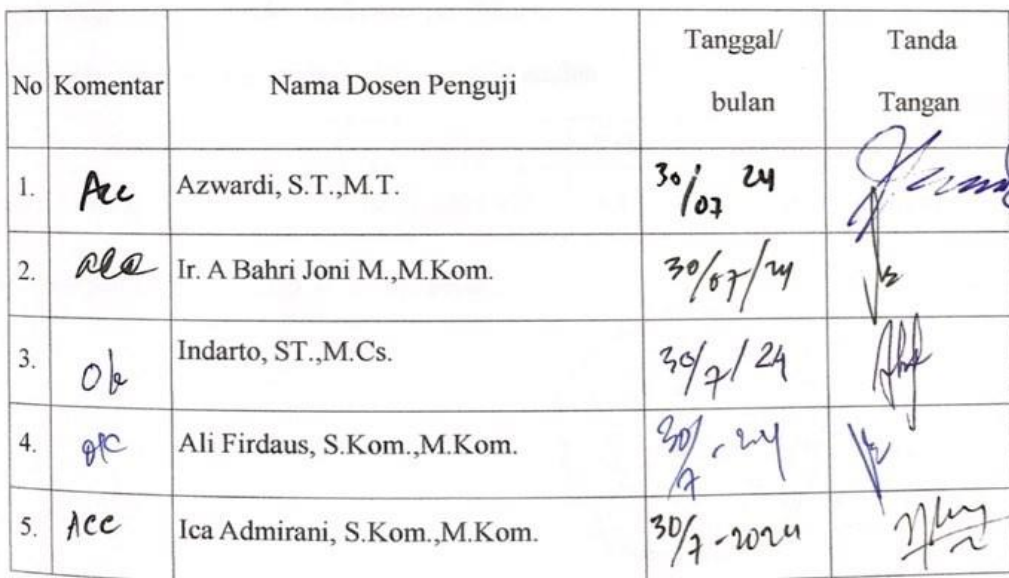 No Komentar Nama Dosen Penguji Tanggal/ bulan Tanda Tangan
1. Acc Azwardi, S.T.,M.T. 30/07 24
2. acc Ir. A Bahri Joni M.,M.Kom. 30/07/24
3. Ok Indarto, ST.,M.Cs. 30/7/24
4. ok Ali Firdaus, S.Kom.,M.Kom. 30/7-24
5. Acc Ica Admirani, S.Kom.,M.Kom. 30/7-2024